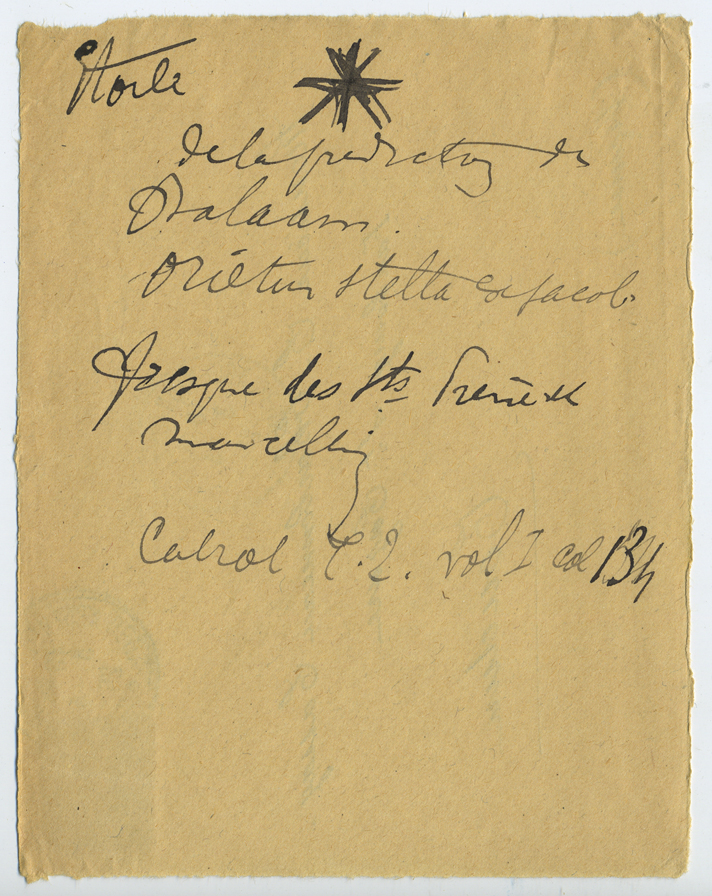 Etoile
de la prediction de
Balaam.
Orietur stella ex Jacob.
fresque des Sts Pierre et
Marcellin
Cabrol T. 2. vol I col 134